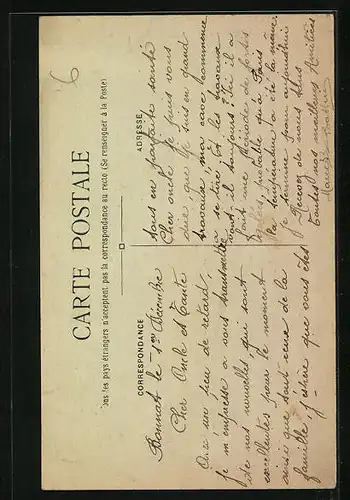 CARTE POSTALE
Tous les pays étrangers n'acceptent pas la correspondance au recto (Se renseigner à la Poste)
CORRESPONDANCE
ADRESSE
6
Bonnat le 1er Décembre
Cher Oncle et Tante
un peu de retard,
je m'empresse à vous transmettre
de nos nouvelles, qui sont
excellentes pour le moment
ainsi que tout ceux de la
famille j'espère que vous êtes
tous en parfaite santé
Cher oncle je puis vous
dire, que je suis en grand
travaux, ma cave, commence
à se tirer, et les travaux
vont, il toujours? Ici il a
fait une période de froids
probable qu'à Paris
la température a été la même.
je termine pour aujourd'hui
Recevez de nous tous
toutes nos meilleurs Amitiés